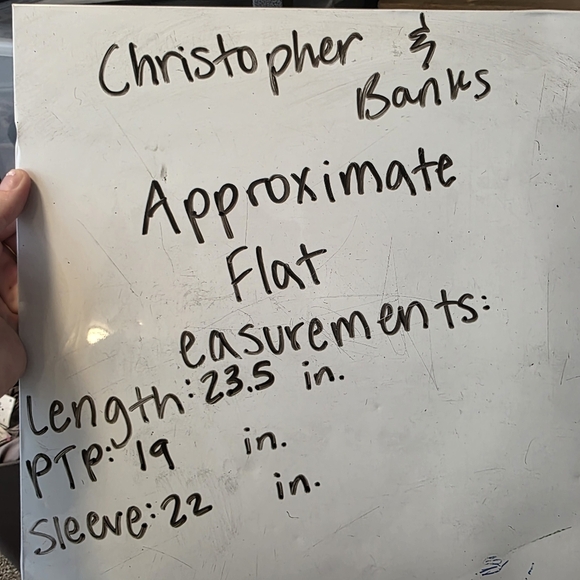 Christopher &
Banks
Approximate
Flat
easurements:
Length: 23.5 in.
PTP: 19 in.
Sleeve: 22 in.